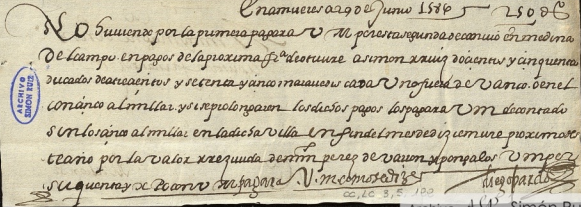 En amveres a 29 de Junio 1586 250 dos
No haviendo por la primera pagara V M por esta segunda de canvio en medina
del campo en pagos de la proxima fa de otubre a simon ruiz docientos y cinquenta
ducados de a trecientos y setenta y cinco maravedis cada uno fuera de vanco con el
con cinco al millar y si se prolongasen los dichos pagos los pagara V M de contado
sin los cinco al millar en la dicha villa en fin del mes de diziembre proximo
traño por la valor rrezivida de perez de y pongalos V M por
su quenta y Xpo con V M pagara V. m como se dize
ARCHIVO
SIMON RUIZ
CC, LC 3, 5,
Simón Ru